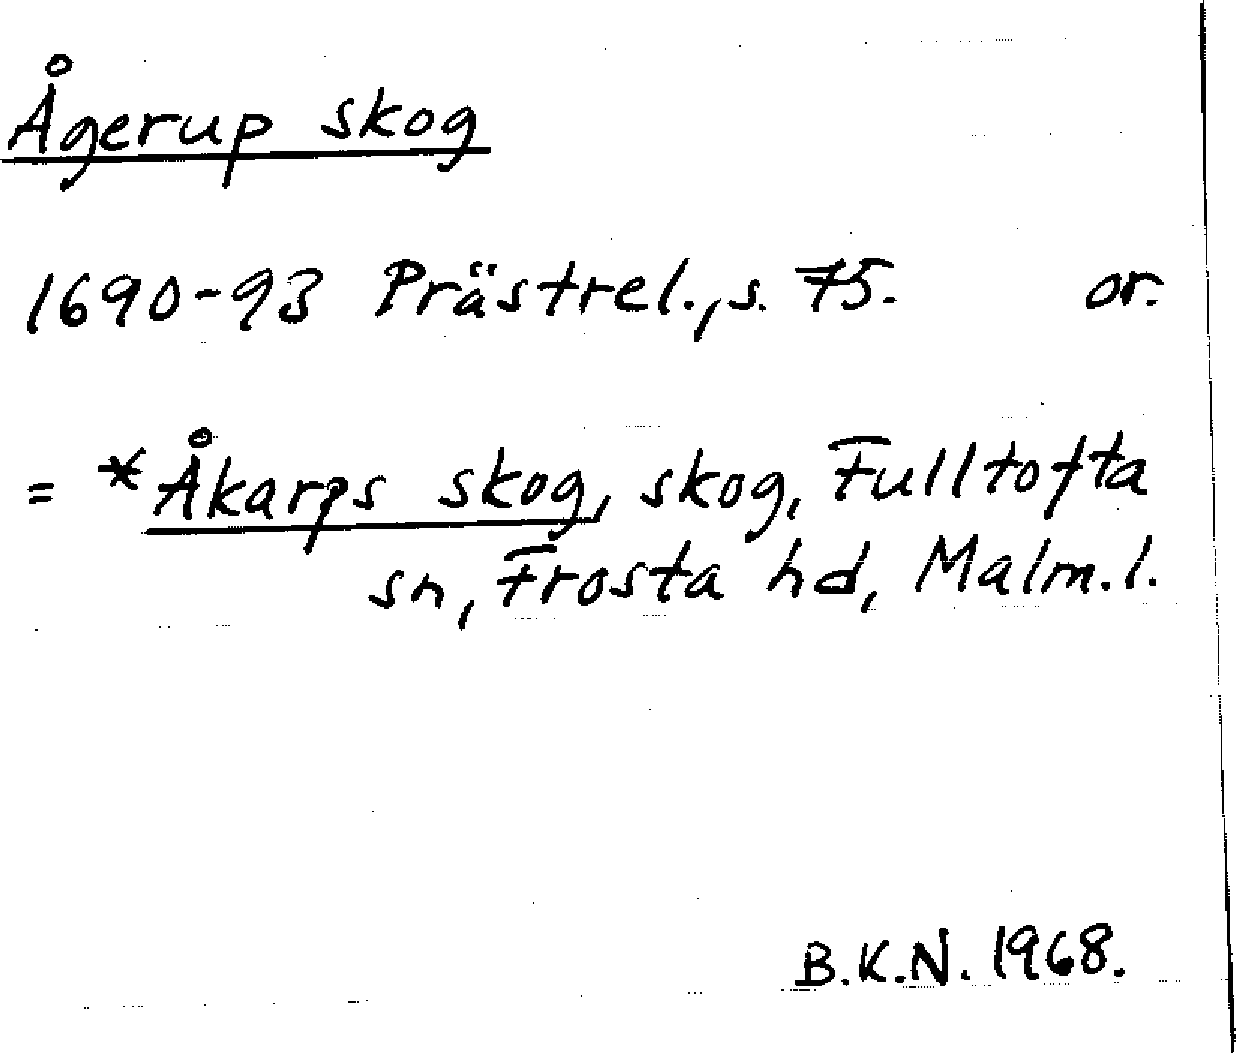 Ågerup skog
1690-93 Prästrel., s. 75. or.
= *Åkarps skog, skog, Fulltofta
sn, Frosta hd, Malm. l.
B.K.N. 1968.